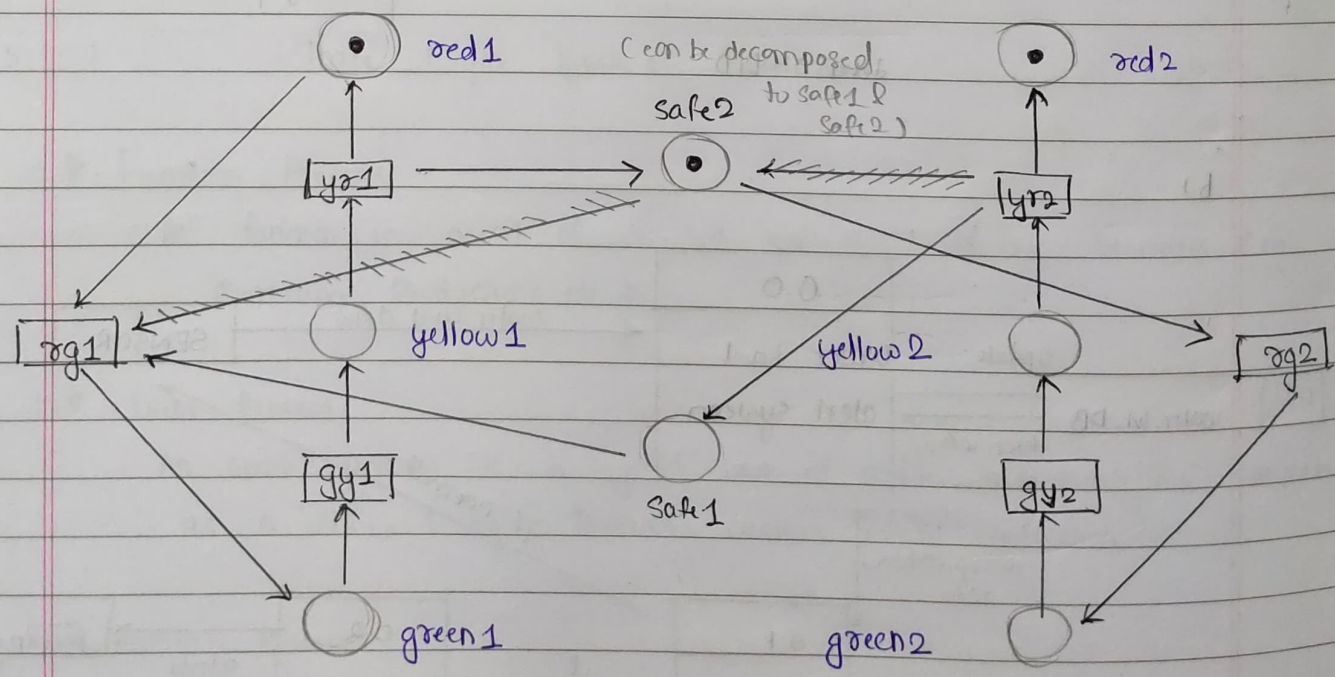 red1
(can be decomposed
to safe1 &
safe2)
red2
safe2
yr1
yr2
yellow1
yellow2
rg1
rg2
gy1
gy2
safe1
green1
green2